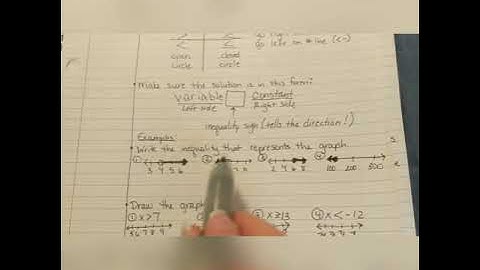 > ≥
< ≤
open closed
circle circle
Go left on # line (<-)
• Make sure the solution is in this form:
Variable Constant
Left side Right side
inequality sign (tells the direction!)
Examples
• Write the inequality that represents the graph.
① ② ③ ④
3 4 5 6 2 4 6 8 100 200 300
• Draw the graph
① x>7 ③ x≥13 ④ x<-12
5 6 7 8 9